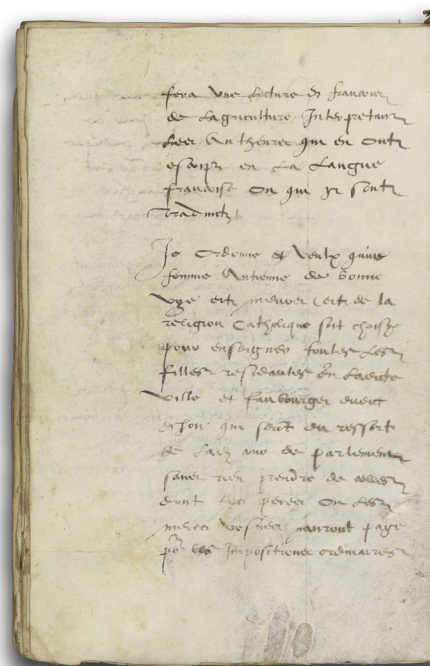 fera une lecture en francois
de Lagriculture Interpretant
Les Autheures qui en ont
escript en La Langue
francoise ou qui y sont
traduictz
Je Ordonne et veulx quune
femme Antienne de bonne
vye et meurs et de la
religion Catholique soit choisye
pour enseigner toutes Les
filles residantes En Ladicte
ville et faubourgs
qui sont du ressort
de parlement
sans rien prendre de celles
dont Les peres ou Les
meres nauront paye
po les Impositiones ordinaires